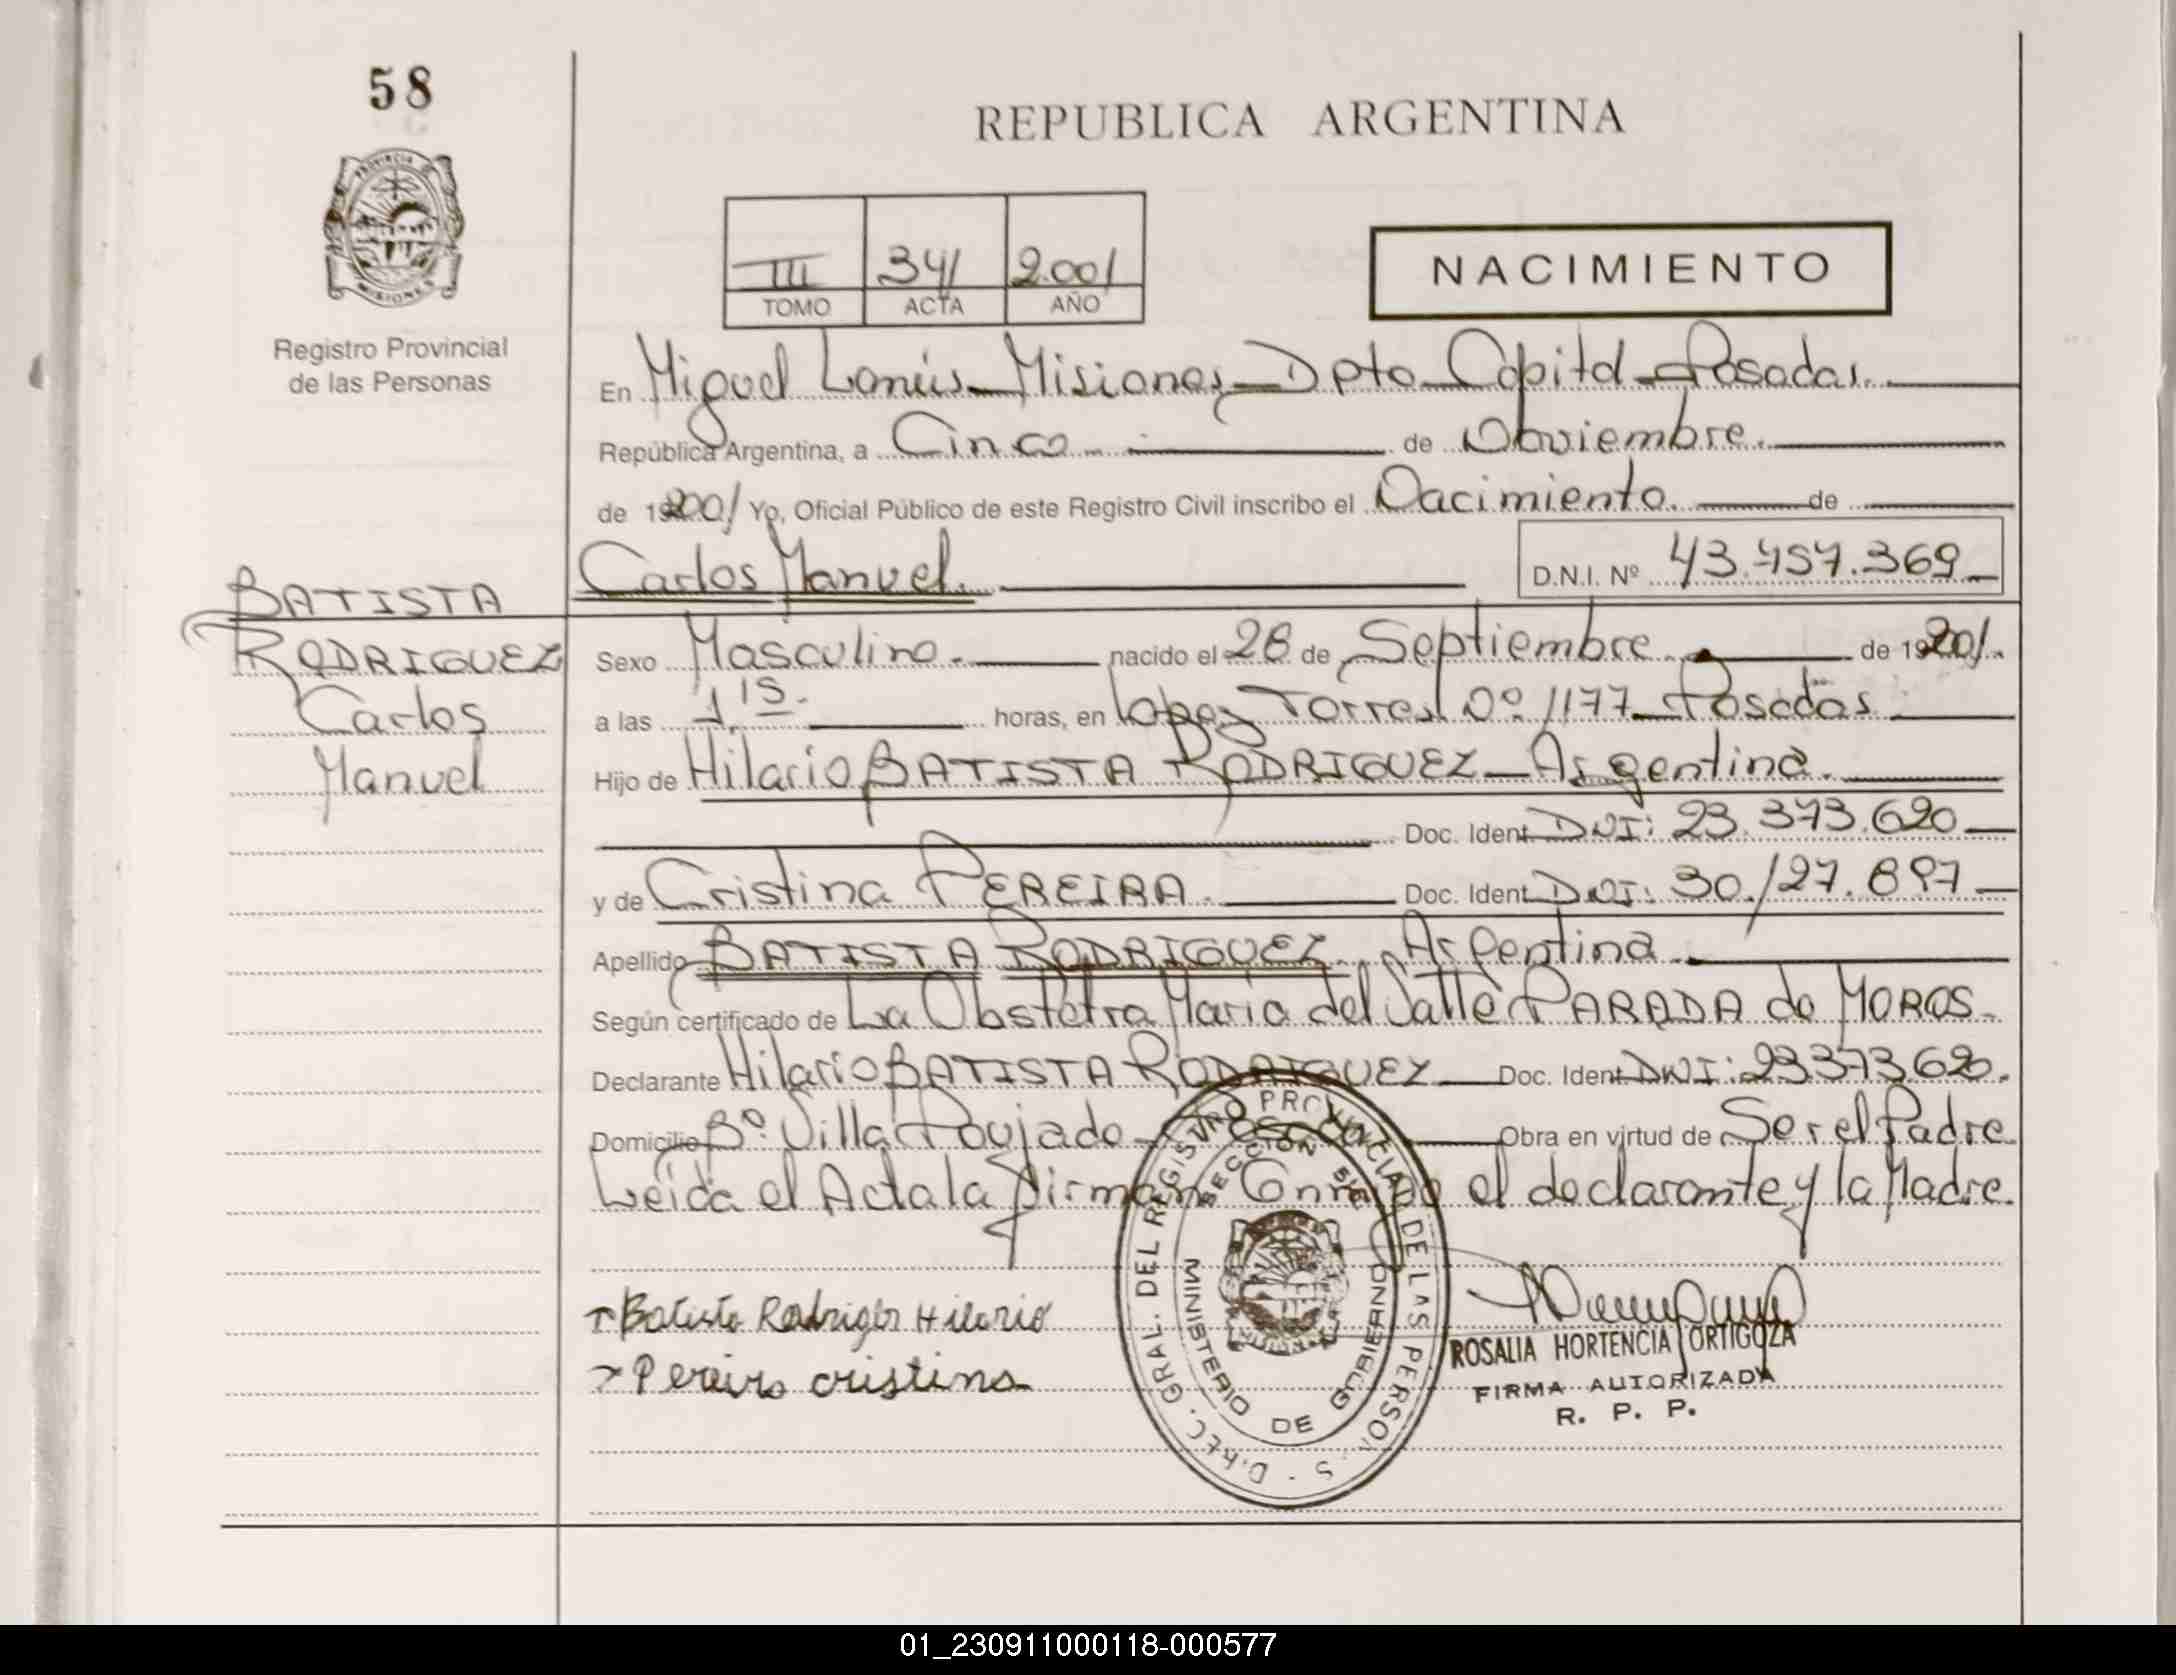 58
REPUBLICA ARGENTINA
PROVINCIA DE
MISIONES
Registro Provincial
de las Personas
III 341 2.001
TOMO ACTA AÑO
NACIMIENTO
En Miguel Lanús - Misiones - Dpto Capital - Posadas.
República Argentina, a Cinco de Noviembre.
de 2001 Yo, Oficial Público de este Registro Civil inscribo el Nacimiento. de
Carlos Manuel. D.N.I. Nº 43.457.369
BATISTA
RODRIGUEZ
Carlos
Manuel
Sexo Masculino. nacido el 28 de Septiembre. de 2001.
a las 1,15. horas, en Lopez Torres Nº 1177 - Posadas.
Hijo de Hilario BATISTA RODRIGUEZ - Argentina.
Doc. Ident. DNI: 23.373.620
y de Cristina PEREIRA. Doc. Ident. DNI: 30.127.897
Apellido BATISTA RODRIGUEZ. Argentina.
Según certificado de La Obstetra Maria del Valle PARADA de MOROS.
Declarante Hilario BATISTA RODRIGUEZ Doc. Ident. DNI: 23.373.620.
Domicilio Bº. Villa Poujade - Posadas Obra en virtud de Ser el Padre.
Leida el Acta la firman Conmigo el declarante y la Madre.
Batista Rodriguez Hilario
Pereira cristina
DIREC. GRAL. DEL REGISTRO PROVINCIAL DE LAS PERSONAS
SECCION
MINISTERIO DE GOBIERNO
ROSALIA HORTENCIA ORTIGOZA
FIRMA AUTORIZADA
R. P. P.
01_230911000118-000577